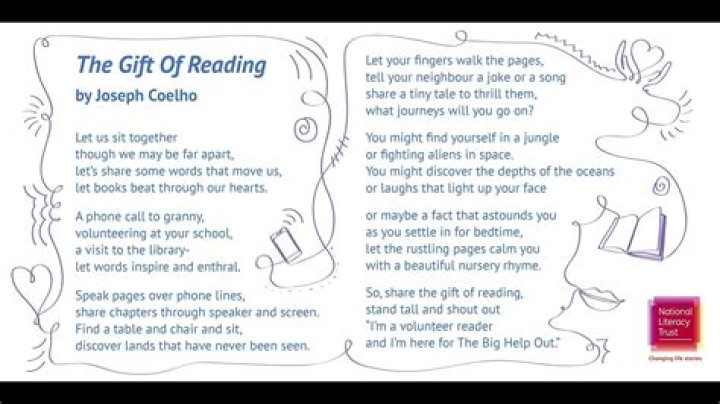 The Gift Of Reading
by Joseph Coelho
Let us sit together
though we may be far apart,
let's share some words that move us,
let books beat through our hearts.
A phone call to granny,
volunteering at your school,
a visit to the library-
let words inspire and enthral.
Speak pages over phone lines,
share chapters through speaker and screen.
Find a table and chair and sit,
discover lands that have never been seen.
Let your fingers walk the pages,
tell your neighbour a joke or a song
share a tiny tale to thrill them,
what journeys will you go on?
You might find yourself in a jungle
or fighting aliens in space.
You might discover the depths of the oceans
or laughs that light up your face
or maybe a fact that astounds you
as you settle in for bedtime,
let the rustling pages calm you
with a beautiful nursery rhyme.
So, share the gift of reading,
stand tall and shout out
"I'm a volunteer reader
and I'm here for The Big Help Out."
National
Literacy
Trust
Changing life stories